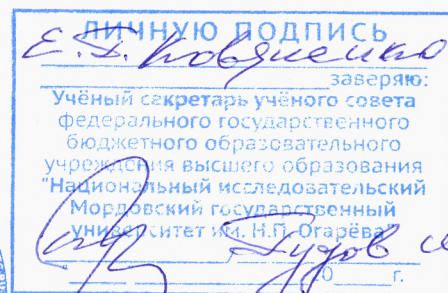 ЛИЧНУЮ ПОДПИСЬ
заверяю:
Учёный секретарь учёного совета
федерального государственного
бюджетного образовательного
учреждения высшего образования
"Национальный исследовательский
Мордовский государственный
университет им. Н.П. Огарёва"
г.